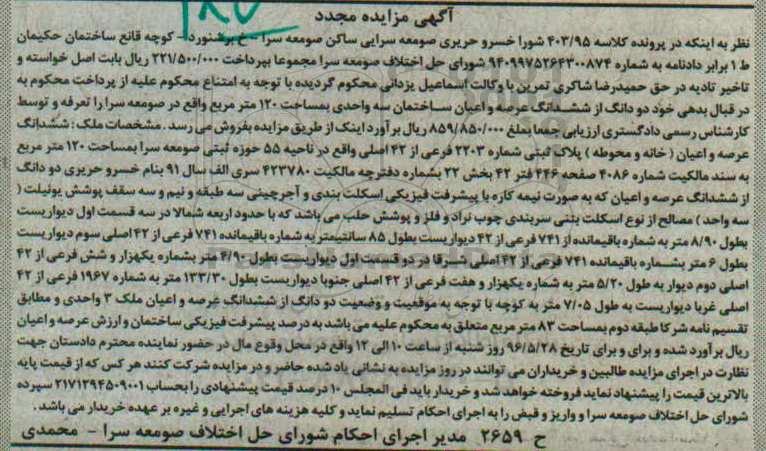 ۲۸۷
آگهی مزایده مجدد
نظر به اینکه در پرونده کلاسه ۴۰۳/۹۵ شورا خسرو حریری صومعه سرایی ساکن صومعه سرا – خ برشنورد – کوچه قانع ساختمان حکیمان
ط ۱ برابر دادنامه به شماره ۹۴۰۹۹۷۵۲۶۴۳۰۰۸۷۴ شورای حل اختلاف صومعه سرا مجموعا بپرداخت ۲۲۱/۵۰۰/۰۰۰ ریال بابت اصل خواسته و
تاخیر تادیه در حق حمیدرضا شاکری تمرین با وکالت اسماعیل یزدانی محکوم گردیده با توجه به امتناع محکوم علیه از پرداخت محکوم به
در قبال بدهی خود دو دانگ از ششدانگ عرصه و اعیان ساختمان سه واحدی بمساحت ۱۲۰ متر مربع واقع در صومعه سرا را تعرفه و توسط
کارشناس رسمی دادگستری ارزیابی جمعا بمبلغ ۸۵۹/۸۵۰/۰۰۰ ریال برآورد اینک از طریق مزایده بفروش می رسد. مشخصات ملک : ششدانگ
عرصه و اعیان ( خانه و محوطه ) پلاک ثبتی شماره ۲۲۰۳ فرعی از ۴۲ اصلی واقع در ناحیه ۵۵ حوزه ثبتی صومعه سرا بمساحت ۱۲۰ متر مربع
به سند مالکیت شماره ۴۰۸۶ صفحه ۴۴۶ فتر ۴۲ بخش ۲۲ بشماره دفترچه مالکیت ۴۲۳۷۸۰ سری الف سال ۹۱ بنام خسرو حریری دو دانگ
از ششدانگ عرصه و اعیان که به صورت نیمه کاره با پیشرفت فیزیکی اسکلت بندی و آجرچینی سه طبقه و نیم و سه سقف پوشش یونیلت (
سه واحد ) مصالح از نوع اسکلت بتنی سربندی چوب نراد و فلز و پوشش حلب می باشد که با حدود اربعه شمالا در سه قسمت اول دیواریست
بطول ۸/۹۰ متر به شماره باقیمانده از ۷۴۱ فرعی از ۴۲ دیواریست بطول ۸۵ سانتیمتر به شماره باقیمانده ۷۴۱ فرعی از ۴۲ اصلی سوم دیواریست
بطول ۶ متر بشماره باقیمانده ۷۴۱ فرعی از ۴۲ اصلی شرقا در دو قسمت اول دیواریست بطول ۴/۹۰ متر بشماره یکهزار و شش فرعی از ۴۲
اصلی دوم دیوار به طول ۵/۲۰ متر به شماره یکهزار و هفت فرعی از ۴۲ اصلی جنوبا دیواریست بطول ۱۳۳/۳۰ متر به شماره ۱۹۶۷ فرعی از ۴۲
اصلی غربا دیواریست به طول ۷/۰۵ متر به کوچه با توجه به موقعیت و وضعیت دو دانگ از ششدانگ عرصه و اعیان ملک ۳ واحدی و مطابق
تقسیم نامه شرکا طبقه دوم بمساحت ۸۳ متر مربع متعلق به محکوم علیه می باشد به درصد پیشرفت فیزیکی ساختمان و ارزش عرصه و اعیان
ریال برآورد شده و برای و برای تاریخ ۹۶/۵/۲۸ روز شنبه از ساعت ۱۰ الی ۱۲ واقع در محل وقوع مال در حضور نماینده محترم دادستان جهت
نظارت در اجرای مزایده طالبین و خریداران می توانند در روز مزایده به نشانی یاد شده حاضر و در مزایده شرکت کنند هر کس که از قیمت پایه
بالاترین قیمت را پیشنهاد نماید فروخته خواهد شد و خریدار باید فی المجلس ۱۰ درصد قیمت پیشنهادی را بحساب ۲۱۷۱۲۹۴۵۰۹۰۰۱ سپرده
شورای حل اختلاف صومعه سرا و واریز و قبض را به اجرای احکام تسلیم نماید و کلیه هزینه های اجرایی و غیره بر عهده خریدار می باشد.
ح ۲۶۵۹ مدیر اجرای احکام شورای حل اختلاف صومعه سرا – محمدی